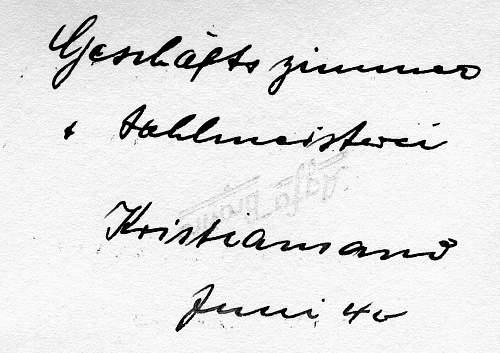 Geschäftszimmer
+ Zahlmeisterei
Agfa Brovira
Kristiansand
Juni 40